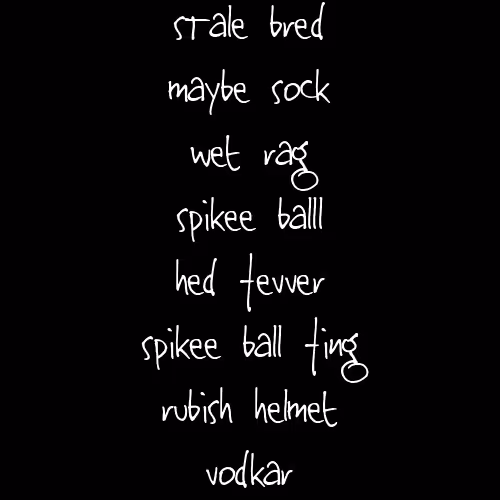 stale bred
maybe sock
wet rag
spikee balll
hed tevver
spikee ball ting
rubish helmet
vodkar